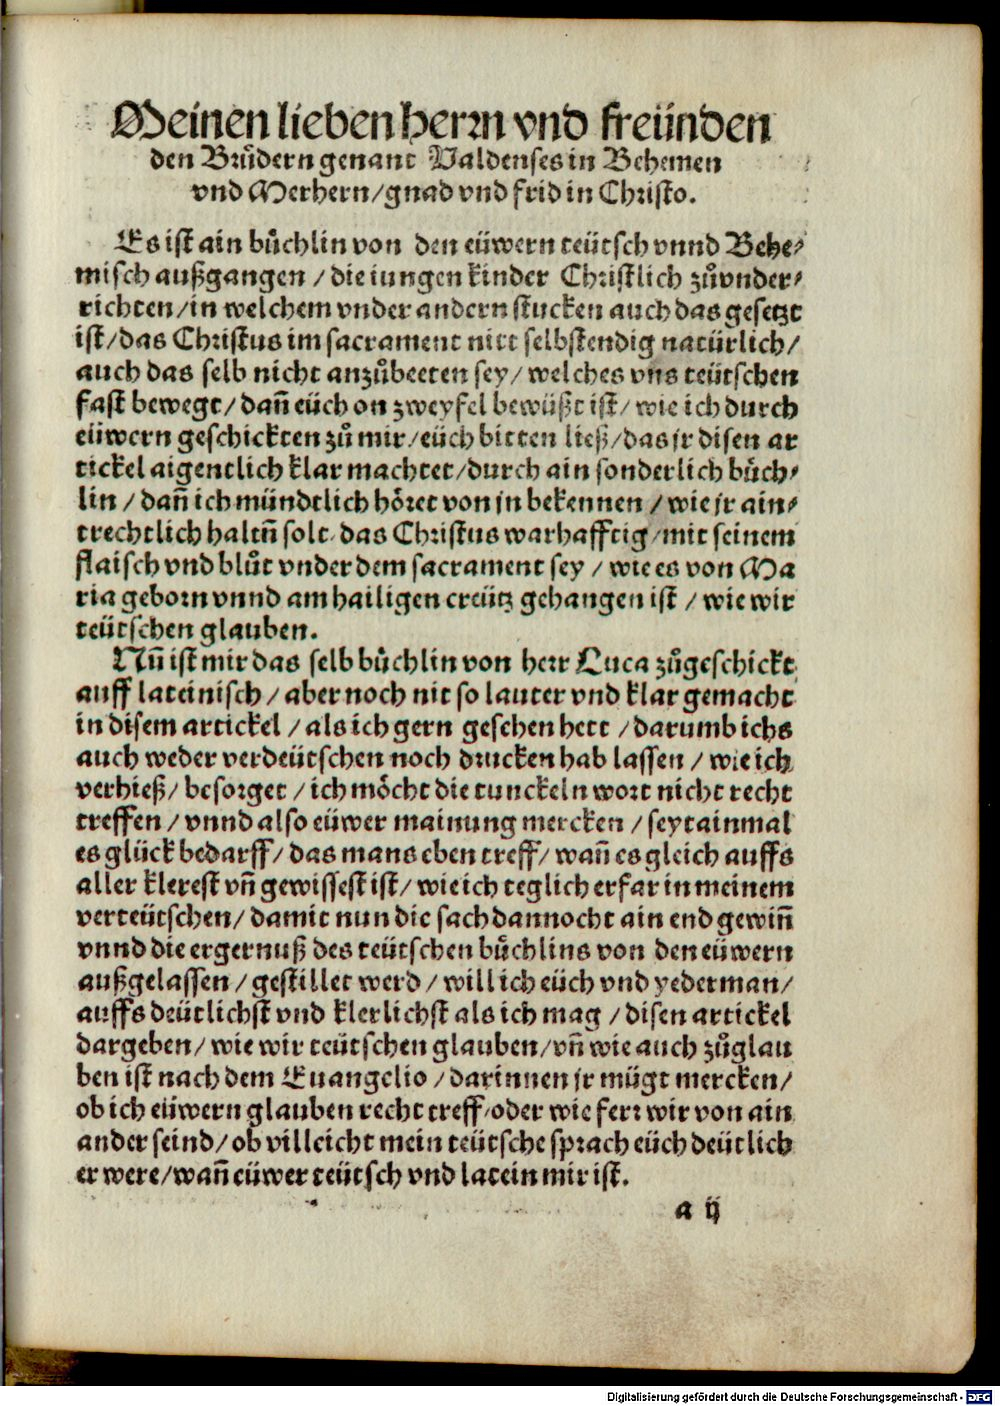 Meinen lieben herrn vnd freünden
den Brůdern genant Valdenses in Behemen
vnd Merhern/gnad vnd frid in Christo.
Es ist ain bůchlin von den eüwern teütsch vnnd Behe⸗
misch außgangen / die iungen kinder Christlich zůvnder⸗
richten/in welchem vnder andern stucken auch das gesetzt
ist/das Christus im sacrament nitt selbstendig natürlich/
auch das selb nicht anzůbeeten sey/welches vns teütschen
fast bewegt/dañ eüch on zweyfel bewüßt ist/wie ich durch
eüwern geschickten zů mir/eüch bitten ließ/das jr disen ar
tickel aigentlich klar machtet/durch ain sonderlich bůch⸗
lin / dañ ich mündtlich höret von jn bekennen / wie jr ain⸗
trechtlich haltñ solt/das Christus warhafftig/mit seinem
flaisch vnd blůt vnder dem sacrament sey / wie es von Ma
ria geborn vnnd am hailigen creütz gehangen ist / wie wir
teütschen glauben.
Nuñ ist mir das selb bůchlin von herr Luca zůgeschickt
auff lateinisch / aber noch nit so lauter vnd klar gemacht
in disem artickel / als ich gern gesehen hett / darumb ichs
auch weder verdeütschen noch drucken hab lassen / wie ich
verhieß/ besorget / ich möcht die tunckeln wort nicht recht
treffen / vnnd also eüwer mainung mercken / seytainmal
es glück bedarff/ das mans eben treff/ wañ es gleich auffs
aller klerest vñ gewissest ist/ wie ich teglich erfar in meinem
verteütschen/ damit nun die sach dannocht ain end gewiñ
vnnd die ergernuß des teütschen bůchlins von den eüwern
außgelassen / gestillet werd / will ich eüch vnd yederman/
auffs deütlichst vnd klerlichst als ich mag / disen artickel
dargeben/ wie wir teütschen glauben/vñ wie auch zůglau
ben ist nach dem Euangelio / darinnen jr mügt mercken/
ob ich eüwern glauben recht treff/oder wie ferr wir von ain
ander seind/ob villeicht mein teütsche sprach eüch deütlich
er were/wañ eüwer teütsch vnd latein mir ist.
a ij
Digitalisierung gefördert durch die Deutsche Forschungsgemeinschaft - DFG